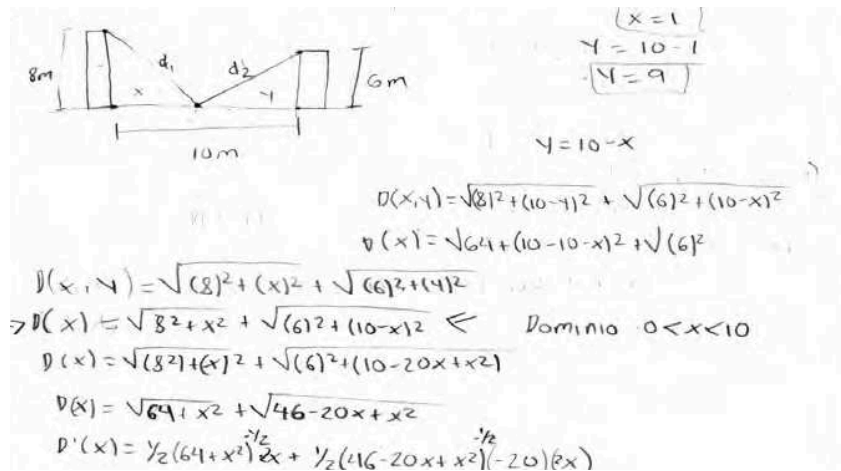 8m
d₁
d₂
x
y
6m
10m
x=1
y=10-1
y=9
y=10-x
D(x,y)=√(8)²+(10-y)² + √(6)²+(10-x)²
D(x)=√64+(10-10-x)²+√(6)²
D(x,y)=√(8)²+(x)² + √(6)²+(y)²
→D(x)=√8²+x² + √(6)²+(10-x)² ← Dominio 0<x<10
D(x)=√(8²)+(x)² + √(6)²+(10-20x+x²)
D(x)=√64+x² + √46-20x+x²
D'(x)=1/2(64+x²)^-1/2 2x + 1/2(46-20x+x²)^-1/2(-20)(2x)